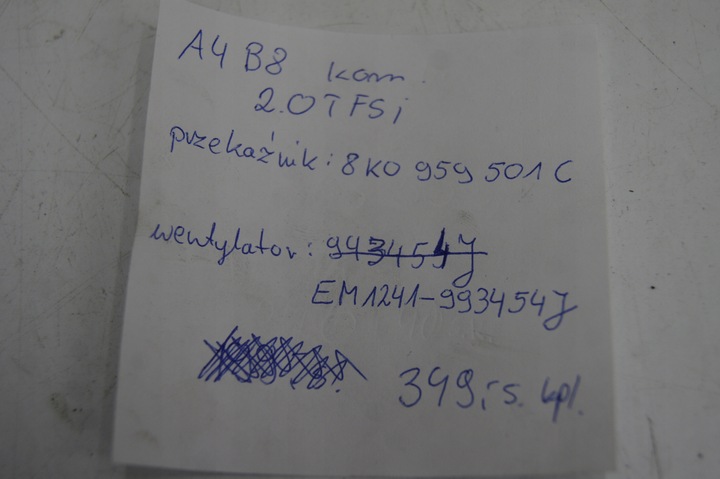 A4 B8 kom.
2.0 TFSi
przekaźnik: 8K0 959 501 C
wentylator: 993454J
EM1241-993454J
349,- s. kpl.